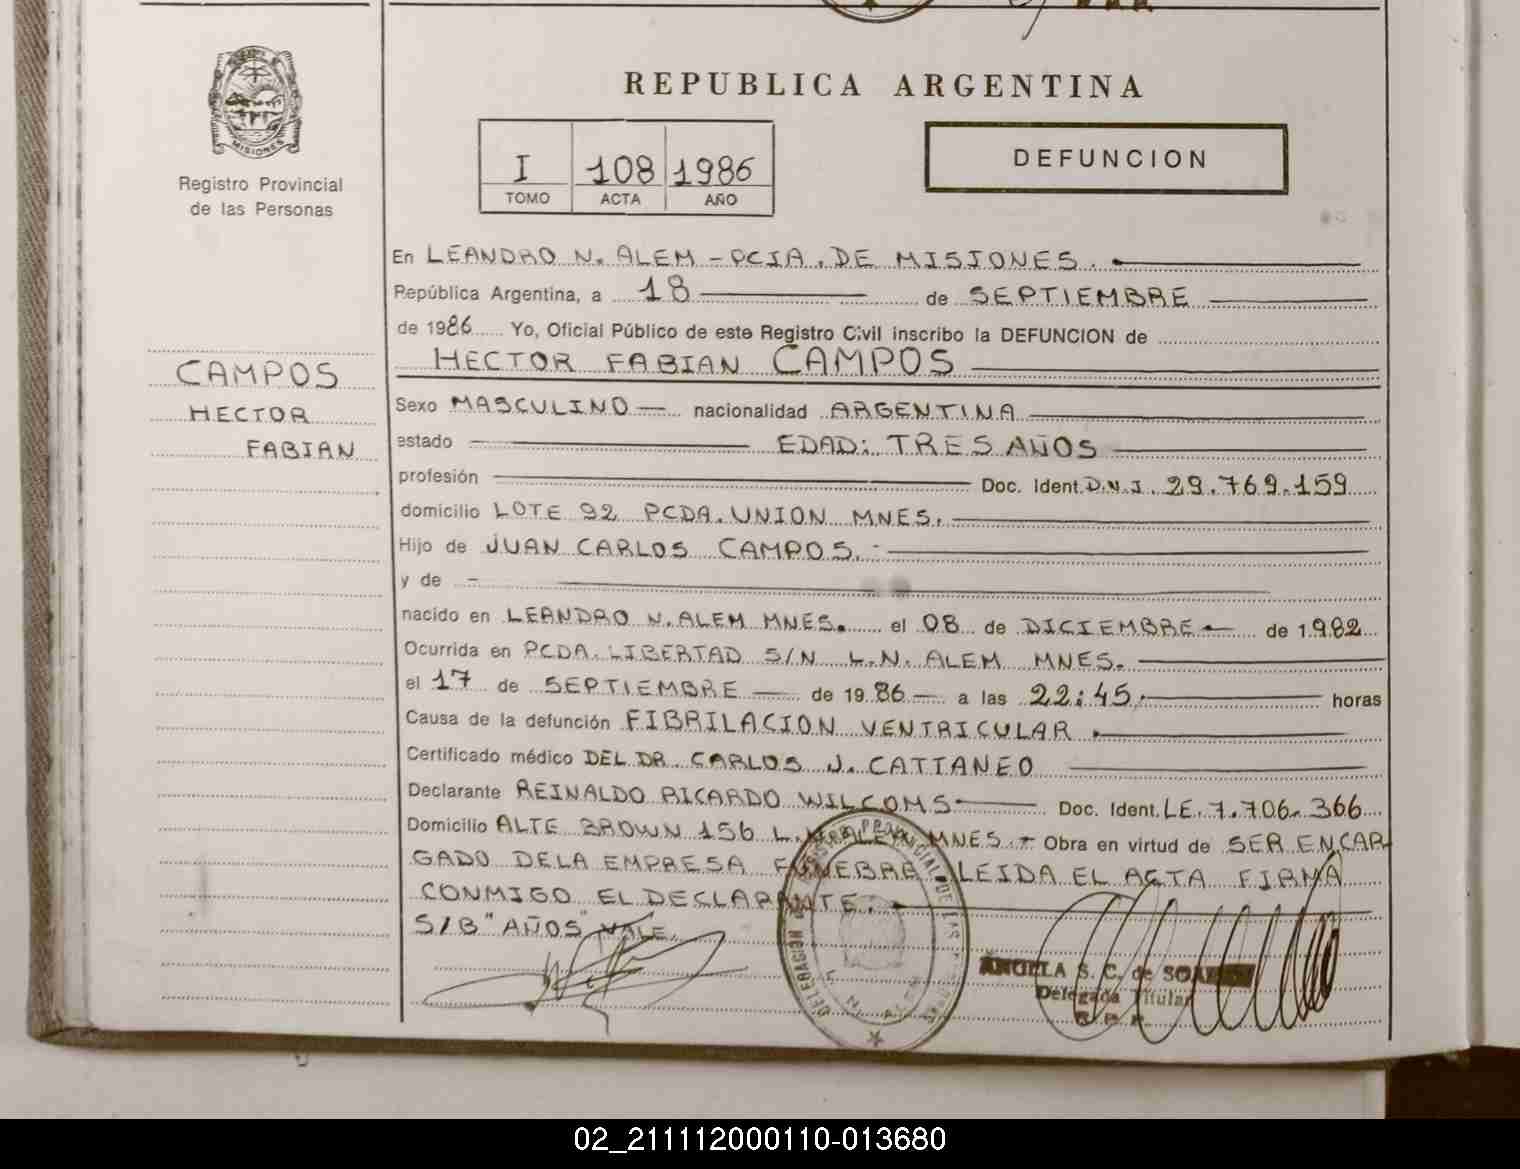 REPUBLICA ARGENTINA
MISIONES
Registro Provincial
de las Personas
I 108 1986
TOMO ACTA AÑO
DEFUNCION
En LEANDRO N. ALEM - PCIA. DE MISIONES.
República Argentina, a 18 de SEPTIEMBRE
de 1986 Yo, Oficial Público de este Registro Civil inscribo la DEFUNCION de
HECTOR FABIAN CAMPOS
CAMPOS
HECTOR
FABIAN
Sexo MASCULINO nacionalidad ARGENTINA
estado EDAD: TRES AÑOS
profesión Doc. Ident. D.N.I. 29.769.159
domicilio LOTE 92 PCDA. UNION MNES.
Hijo de JUAN CARLOS CAMPOS.
y de
nacido en LEANDRO N. ALEM MNES. el 08 de DICIEMBRE de 1982
Ocurrida en PCDA. LIBERTAD S/N L.N. ALEM MNES.
el 17 de SEPTIEMBRE de 1986 a las 22:45 horas
Causa de la defunción FIBRILACION VENTRICULAR
Certificado médico DEL DR. CARLOS J. CATTANEO
Declarante REINALDO RICARDO WILCOMS Doc. Ident. LE. 7.706.366
Domicilio ALTE BROWN 156 L.N. ALEM MNES. Obra en virtud de SER ENCAR-
GADO DE LA EMPRESA FUNEBRE LEIDA EL ACTA FIRMA
CONMIGO EL DECLARANTE.
S/B "AÑOS" VALE.
ANGELA S. C. de
Delegada Titular
02_211112000110-013680